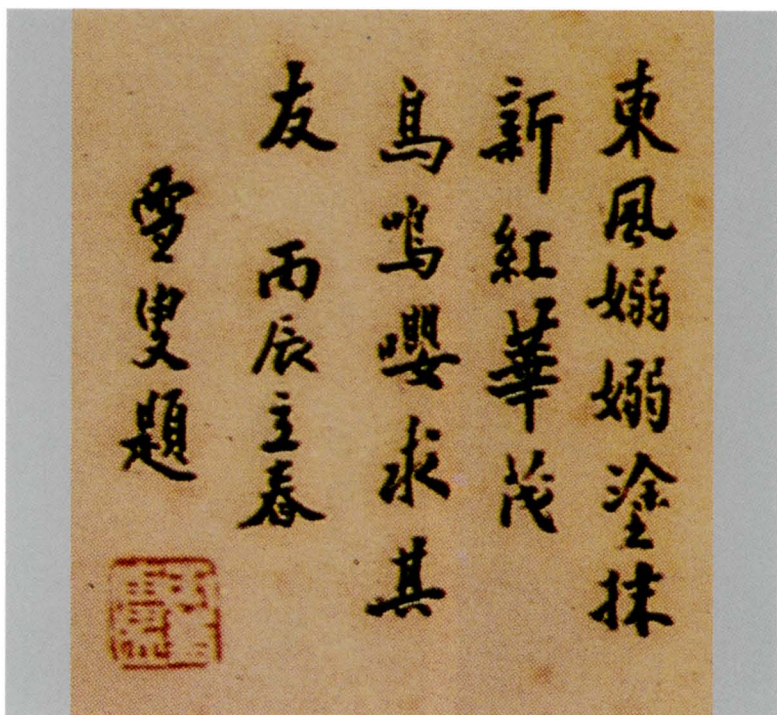 東風嫋嫋塗抹
新紅華茂
鳥鳴嚶求其
友 丙辰立春
雪叟題